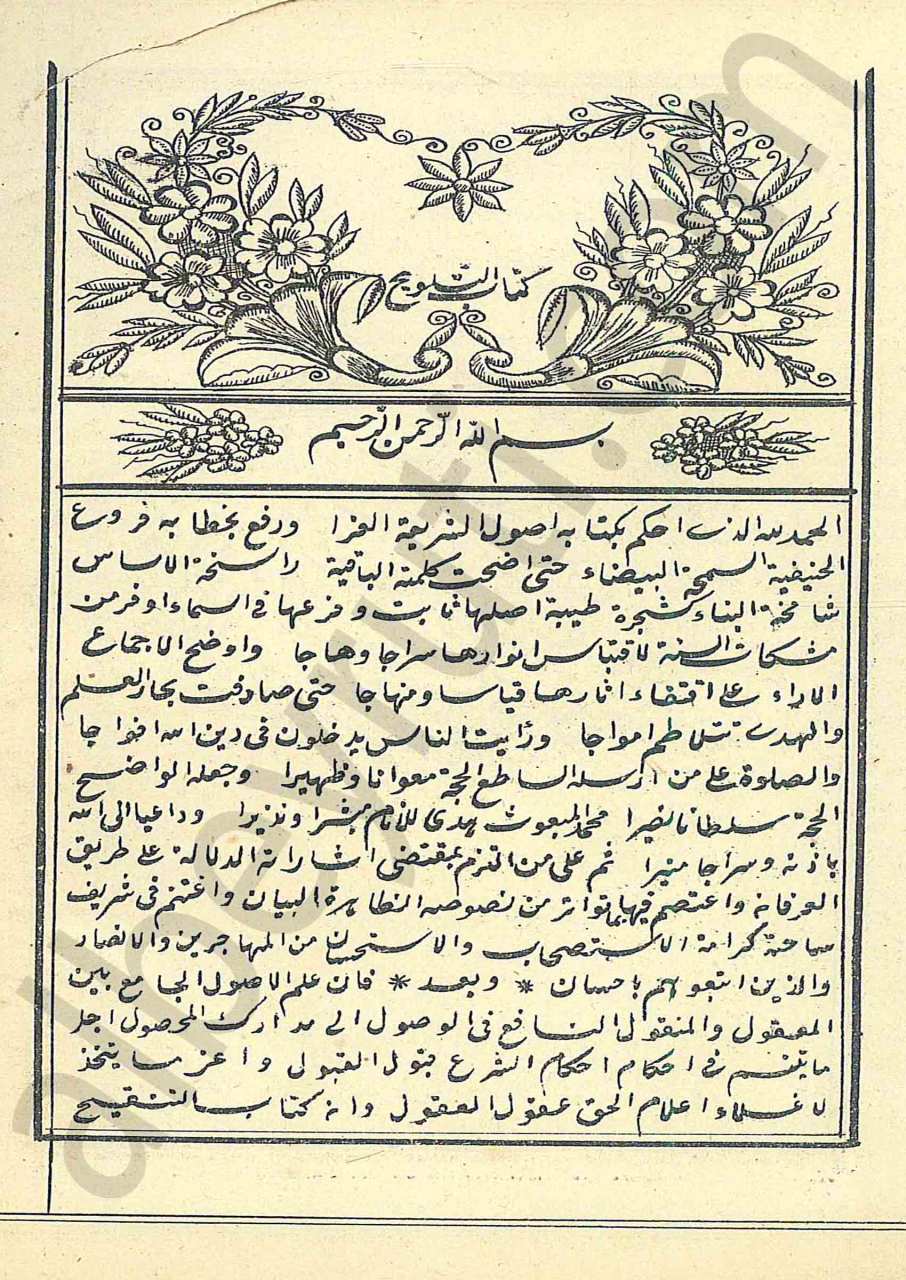 كتاب التلويح
بسم الله الرحمن الرحيم
الحمد لله الذى احكم بكتابه اصول الشريعة الغرا ورفع بخطابه فروع
الحنيفية السمحة البيضاء حتى اضحت كلمته الباقية راسخة الاساس
شامخة البناء كشجرة طيبة اصلها ثابت وفرعها فى السماء اوقر من
مشكات السنة لاقتباس انوارها سراجا وهاجا واوضح الاجماع
الاراء على اقتفاء اثارها قياسا ومنهاجا حتى صادفت بحار العلم
والهدى تتلاطم امواجا ورأيت الناس يدخلون فى دين الله افواجا
والصلوة على من ارسله الساطع الحجة معوانا وظهيرا وجعله الواضح
الحجة سلطانا نصيرا محمد المبعوث هدى للأنام مبشرا ونذيرا وداعيا الى الله
باذنه وسراجا منيرا ثم على من التزم بمقتضى اشارته الدلالة على طريق
العرفان واعتصم فيها بما تواتر من نصوصه الظاهرة البيان واغتنم فى شريف
ساحته كرامة الاستصحاب والاستحسان من المهاجرين والانصار
والذين اتبعوهم باحسان * وبعد * فان علم الاصول الجامع بين
المعقول والمنقول النافع فى الوصول الى مدارك المحصول اجل
ما يتنسم فى احكام احكام الشرع قبول القبول واعز ما يتخذ
لاغلاء اعلام الحق عقول العقول وانه كتاب التنقيح
albeyruti.com